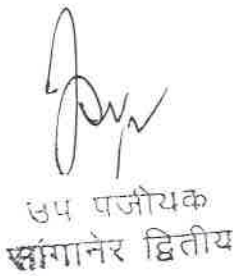 उप पंजीयक
सांगानेर द्वितीय